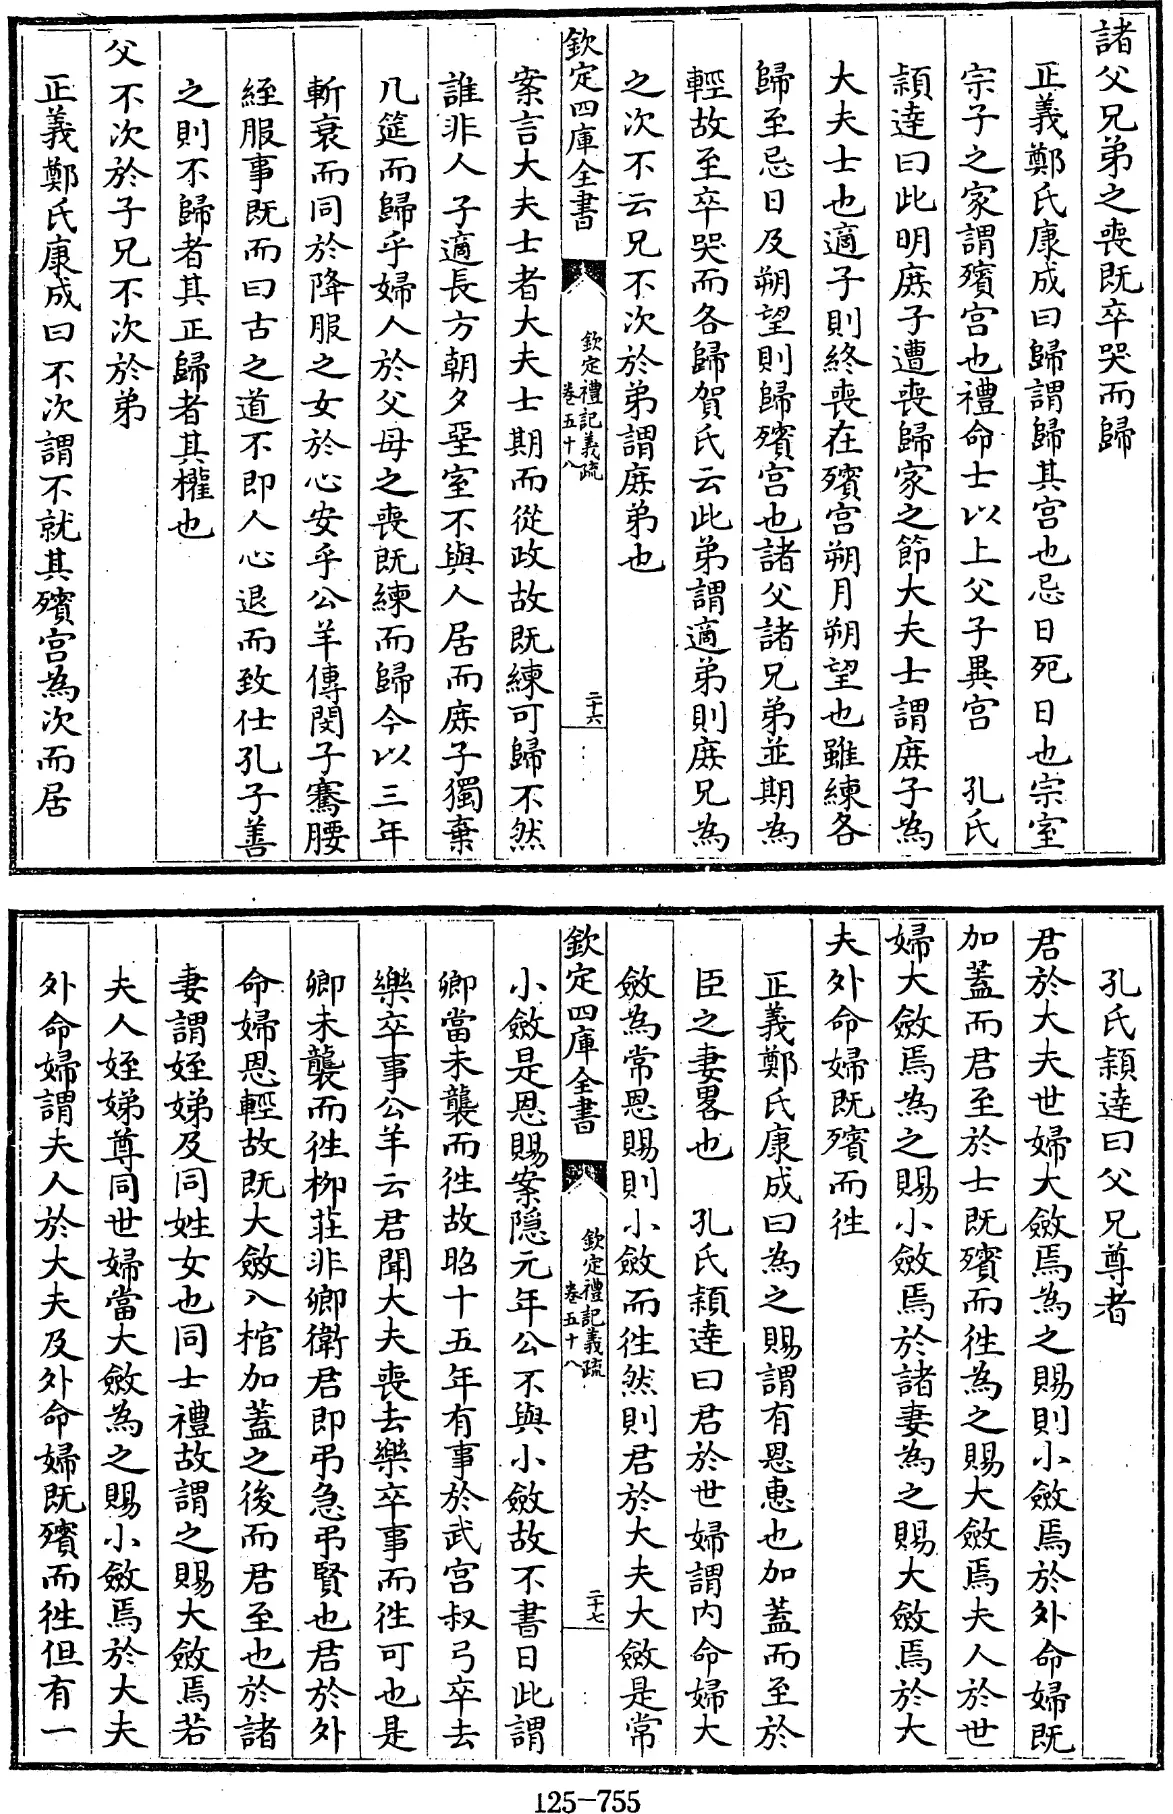 諸父兄弟之喪既卒哭而歸
正義鄭氏康成曰歸謂歸其宮也忌日死日也宗室
宗子之家謂殯宮也禮命士以上父子異宮　孔氏
穎達曰此明庶子遭喪歸家之節大夫士謂庶子為
大夫士也適子則終喪在殯宮朔月朔望也雖練各
歸至忌日及朔望則歸殯宮也諸父諸兄弟並期為
輕故至卒哭而各歸賀氏云此弟謂適弟則庶兄為
之次不云兄不次於弟謂庶弟也
欽定四庫全書　欽定禮記義疏　卷五十八　二十六
案言大夫士者大夫士期而從政故既練可歸不然
誰非人子適長方朝夕堊室不與人居而庶子獨棄
几筵而歸乎婦人於父母之喪既練而歸今以三年
斬衰而同於降服之女於心安乎公羊傳閔子騫腰
絰服事既而曰古之道不即人心退而致仕孔子善
之則不歸者其正歸者其權也
父不次於子兄不次於弟
正義鄭氏康成曰不次謂不就其殯宮為次而居
孔氏穎達曰父兄尊者
君於大夫世婦大斂焉為之賜則小斂焉於外命婦既
加蓋而君至於士既殯而徃為之賜大斂焉夫人於世
婦大斂焉為之賜小斂焉於諸妻為之賜大斂焉於大
夫外命婦既殯而徃
正義鄭氏康成曰為之賜謂有恩惠也加蓋而至於
臣之妻畧也　孔氏穎達曰君於世婦謂内命婦大
斂為常恩賜則小斂而徃然則君於大夫大斂是常
欽定四庫全書　欽定禮記義疏　卷五十八　二十七
小斂是恩賜案隱元年公不與小斂故不書日此謂
卿當未襲而徃故昭十五年有事於武宮叔弓卒去
樂卒事公羊云君聞大夫喪去樂卒事而徃可也是
卿未襲而徃柳莊非卿衛君即弔急弔賢也君於外
命婦恩輕故既大斂入棺加蓋之後而君至也於諸
妻謂姪娣及同姓女也同士禮故謂之賜大斂焉若
夫人姪娣尊同世婦當大斂為之賜小斂焉於大夫
外命婦謂夫人於大夫及外命婦既殯而徃但有一
125-755